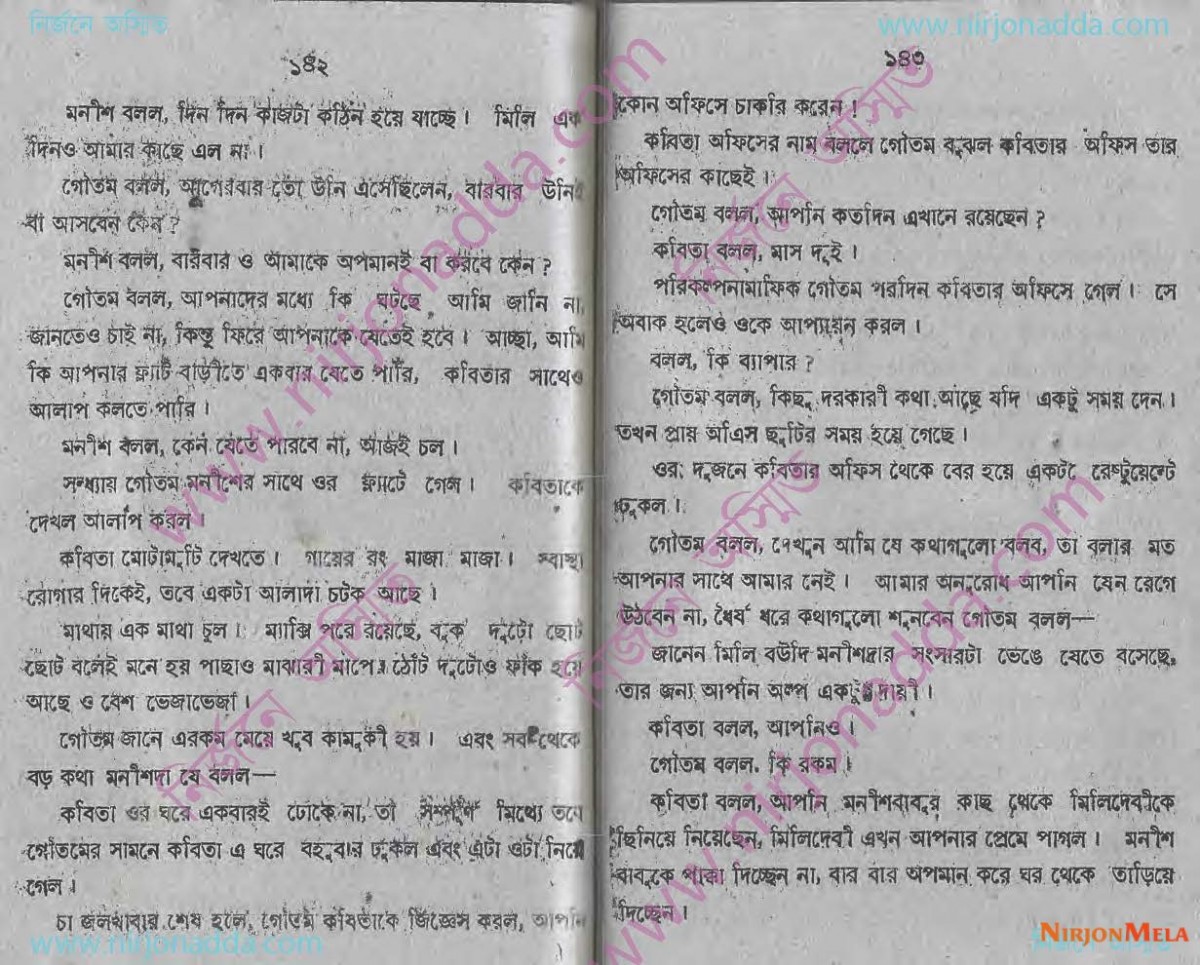 নির্জনে অস্মিত
১৪২
মনীশ বলল, দিন দিন কাজটা কঠিন হয়ে যাচ্ছে। মিলি এক
দিনও আমার কাছে এল না।
গৌতম বলল, আগেরবার তো উনি এসেছিলেন, বারবার উনি
বা আসবেন কেন?
মনীশ বলল, বারবার ও আমাকে অপমানই বা করবে কেন?
গৌতম বলল, আপনাদের মধ্যে কি ঘটছে আমি জানি না,
জানতেও চাই না, কিন্তু ফিরে আপনাকে যেতেই হবে। আচ্ছা, আমি
কি আপনার ফ্ল্যাট বাড়ীতে একবার যেতে পারি, কবিতার সাথেও
আলাপ কলতে পারি।
মনীশ বলল, কেন যেতে পারবে না, আজই চল।
সন্ধ্যায় গৌতম মনীশের সাথে ওর ফ্ল্যাটে গেল। কবিতাকে
দেখল আলাপ করল।
কবিতা মোটামুটি দেখতে। গায়ের রং মাজা মাজা। স্বাস্থ্য
রোগার দিকেই, তবে একটা আলাদা চটক আছে।
মাথায় এক মাথা চুল। ম্যাক্সি পরে রয়েছে, বুক দুটো ছোট
ছোট বলেই মনে হয় পাছাও মাঝারী মাপে। ঠোঁট দুটোও ফাঁক হয়ে
আছে ও বেশ ভেজাভেজা।
গৌতম জানে এরকম মেয়ে খুব কামুকী হয়। এবং সব থেকে
বড় কথা মনীশদা যে বলল—
কবিতা ওর ঘরে একবারই ঢোকে না, তা সম্পূর্ণ মিথ্যে তবে
গৌতমের সামনে কবিতা এ ঘরে বহুবার ঢুকল এবং এটা ওটা নিয়ে
গেল।
চা জলখাবার শেষ হলে, গৌতম কবিতাকে জিজ্ঞেস করল, আপনি
www.nirjonadda.com
www.nirjonadda.com
১৪৩
কোন অফিসে চাকরি করেন!
কবিতা অফিসের নাম বললে গৌতম বুঝল কবিতার অফিস তার
অফিসের কাছেই।
গৌতম বলল, আপনি কতদিন এখানে রয়েছেন?
কবিতা বলল, মাস দুই।
পরিকল্পনামাফিক গৌতম পরদিন কবিতার অফিসে গেল। সে
অবাক হলেও ওকে আপ্যায়ন করল।
বলল, কি ব্যাপার?
গৌতম বলল, কিছু দরকারী কথা আছে যদি একটু সময় দেন।
তখন প্রায় অফিস ছুটির সময় হয়ে গেছে।
ওরা দুজনে কবিতার অফিস থেকে বের হয়ে একটা রেষ্টুয়েন্টে
ঢুকল।
গৌতম বলল, দেখুন আমি যে কথাগুলো বলব, তা বলার মত
আপনার সাথে আমার নেই। আমার অনুরোধ আপনি যেন রেগে
উঠবেন না, ধৈর্য ধরে কথাগুলো শুনবেন গৌতম বলল—
জানেন মিলি বউদি মনীশদার সংসারটা ভেঙে যেতে বসেছে,
তার জন্য আপনি অল্প একটু দায়ী।
কবিতা বলল, আপনিও।
গৌতম বলল, কি রকম।
কবিতা বলল, আপনি মনীশবাবুর কাছ থেকে মিলিদেবীকে
ছিনিয়ে নিয়েছেন, মিলিদেবী এখন আপনার প্রেমে পাগল। মনীশ
বাবুকে পাত্তা দিচ্ছেন না, বার বার অপমান করে ঘর থেকে তাড়িয়ে
দিচ্ছেন।
NIRJONMELA
www.nirjonadda.com
নির্জনে অস্মিত
www.nirjonadda.com
নির্জনে অস্মিত
www.nirjonadda.com
নির্জনে অস্মিত